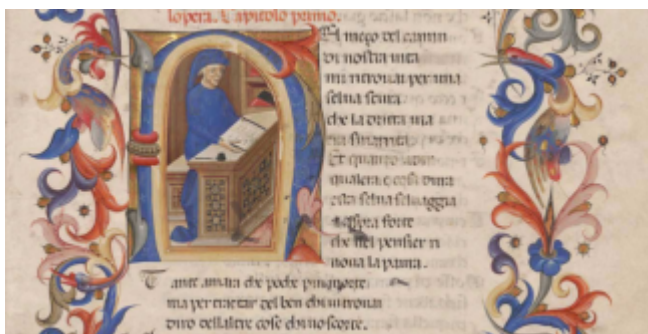 lopera. Capitolo primo.
El meço del camin
di nostra uita
mi ritrouai per una
selua scura
che la diritta uia
era smarrita
Et quanto a dir
qual era e cosa dura
esta selua seluaggia
aspra forte
che nel pensier ri
noua la paura.
Tante amara che pocho piu e morte
ma per tractar del ben chi ui trouai
diro dellaltre cose chi uo scorte.